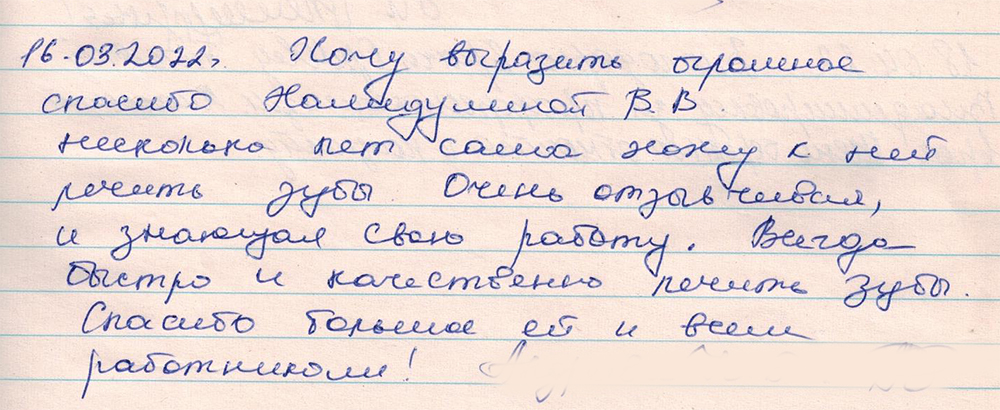 16.03.2022г. Хочу выразить огромное
спасибо Хамидулиной В.В
несколько лет сама хожу к ней
лечить зубы Очень отзывчивая,
и знающая свою работу. Всегда
быстро и качественно лечить зубы.
Спасибо большое ей и всем
работникам!